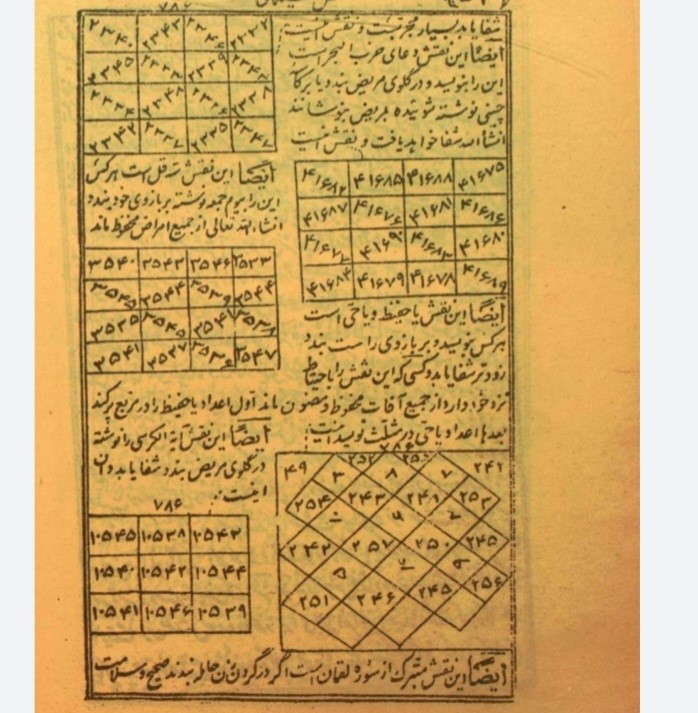 ۷۸۶
شفا یابد بسیار مجرب است و نقش اینست
ایضاً این نقش دعای حزب البحر است
این را بنویسد و در گلوی مریض بندد یا بر کا
چینی نوشته شوئیده بمریض بنوشانند
انشاءالله شفا خواهد یافت و نقش اینست
۲۳۴۰ ۲۳۴۳ ۲۳۴۶ ۲۳۳۲
۲۳۴۵ ۲۳۳۳ ۲۳۳۹ ۲۳۴۴
۲۳۳۴ ۲۳۴۸ ۲۳۴۱ ۲۳۳۸
۲۳۴۲ ۲۳۳۷ ۲۳۳۵ ۲۳۴۷
۴۱۶۸۲ ۴۱۶۸۵ ۴۱۶۸۸ ۴۱۶۷۵
۴۱۶۸۷ ۴۱۶۷۶ ۴۱۶۸۱ ۴۱۶۸۶
۴۱۶۷۷ ۴۱۶۹۰ ۴۱۶۸۳ ۴۱۶۸۰
۴۱۶۸۴ ۴۱۶۷۹ ۴۱۶۷۸ ۴۱۶۸۹
ایضاً این نقش سه قل است هر کس
این را بیوم جمعه نوشته بر بازوی خود بندد
انشاء الله تعالی از جمیع امراض محفوظ ماند
۳۵۴۰ ۳۵۴۳ ۳۵۴۶ ۳۵۳۳
۳۵۴۵ ۳۵۳۴ ۳۵۳۹ ۳۵۴۴
۳۵۳۵ ۳۵۴۸ ۳۵۴۱ ۳۵۳۸
۳۵۴۲ ۳۵۳۷ ۳۵۳۶ ۳۵۴۷
ایضاً این نقش یا حفیظ و یا حی است
هر کس بنویسد و بر بازوی راست بندد
زودتر شفا یابد و کسی که این نقش را با احتیاط
نزد خود دارد از جمیع آفات محفوظ و مصئون ماند اول اعداد یا حفیظ را در مربع پر کند
بعدها اعداد یا حی در مثلث نویسد اینست
ایضاً این نقش آیة الکرسی را نوشته
در گلوی مریض بندد شفا یابد و آن
اینست
۷۸۶
۱۰۵۴۵ ۱۰۵۳۸ ۱۰۵۴۳
۱۰۵۴۰ ۱۰۵۴۲ ۱۰۵۴۴
۱۰۵۴۱ ۱۰۵۴۶ ۱۰۵۳۹
۷۸۶
۴۹ ۳ ۲۵۲ ۸ ۲۵۵ ۷ ۲۴۲
۲۵۴ ۲۴۳ ۲۴۱ ۲۵۳
۲۴۲ ۲۵۷ ۲۵۰ ۲۴۵
۲۵۱ ۲۴۶ ۲۴۵ ۲۵۶
ایضاً این نقش متبرک از سوره لقمان است اگر در گردن زن حامله بندند صحیح و سلامت